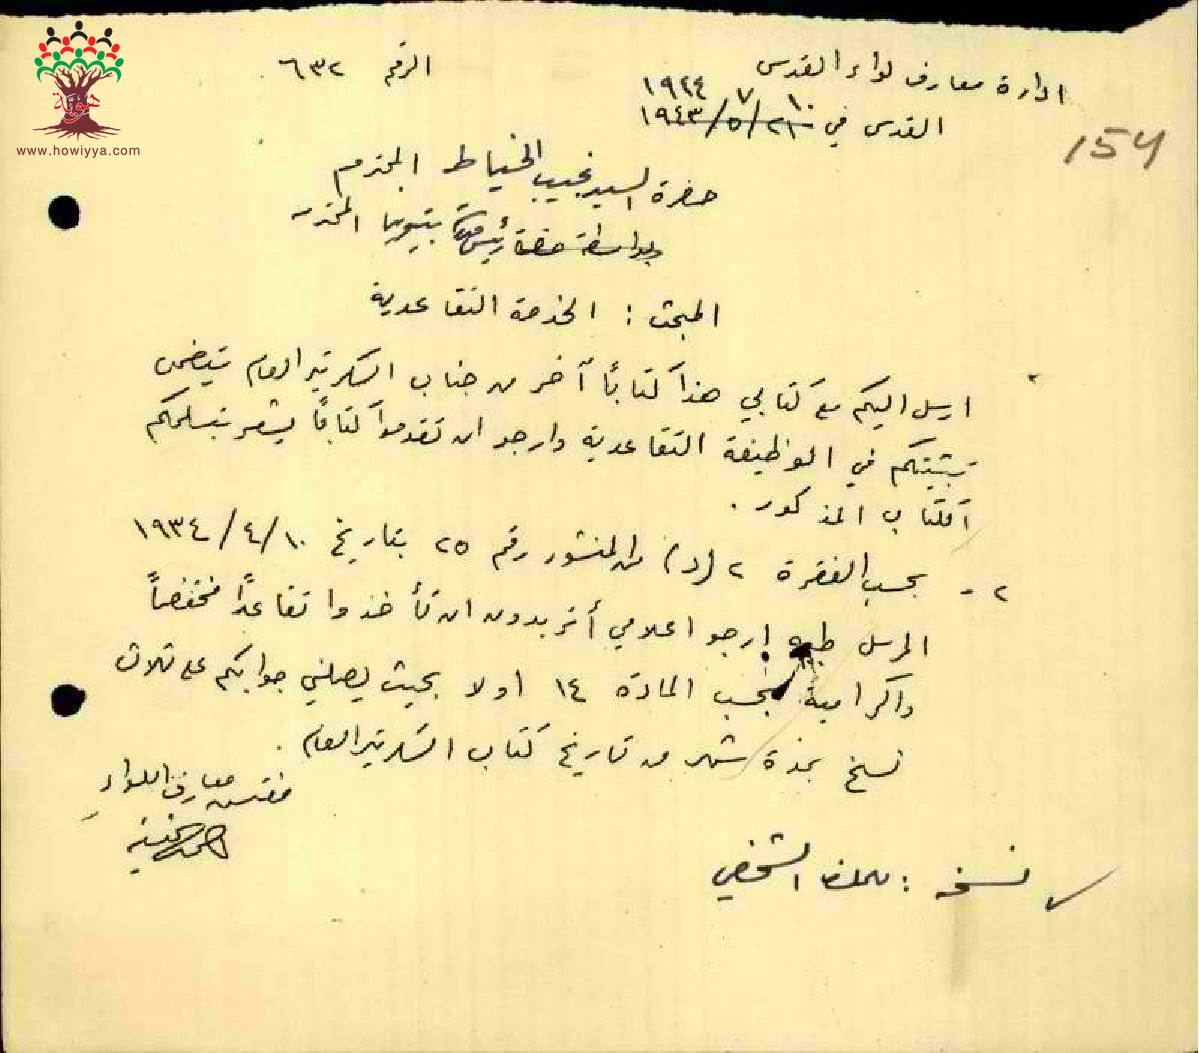 ادارة معارف لواء القدس
الرقم ٦٣٢
١٠ ٧ ١٩٤٤
القدس في ٢١/٥/١٩٤٣
154
حضرة السيد نجيب الخياط المحترم
بواسطة حضرة رئيس المحترم
المبحث : الخدمة التقاعدية
ارسل اليكم مع كتابي هذا كتاباً آخر من جناب السكرتير العام يتضمن
تثبيتكم في الوظيفة التقاعدية وارجو ان تقدموا كتاباً يشعر بتسلمكم
الكتاب المذكور .
٢ - بحسب الفقرة ٢ (د) من المنشور رقم ٢٥ بتاريخ ١٠/٤/١٩٣٤
المرسل طيه ارجو اعلامي أتريدون ان تأخذوا تقاعداً مخفضاً
واكرامية بحسب المادة ١٤ اولا بحيث يصلني جوابكم على ثلاث
نسخ بمدة شهر من تاريخ كتاب السكرتير العام .
مفتش معارف اللواء
نسخة : للملف الشخصي
هوية
www.howiyya.com